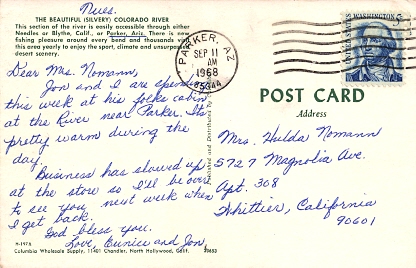 Tues.
THE BEAUTIFUL (SILVERY) COLORADO RIVER
This section of the river is easily accessible through either
Needles or Blythe, Calif., or Parker, Ariz. There is now
fishing pleasure around every bend and thousands visit
this area yearly to enjoy the sport, climate and unsurpassed
desert scenery.
Dear Mrs. Nomann,
Jon and I are spending
this week at his folks cabin
at the River near Parker. Its
pretty warm during the
day.
Business has slowed up
at the store so I'll be over
to see you next week when
I get back.
God bless you.
Love, Eunice and Jon,
H-1975
Columbia Wholesale Supply, 11401 Chandler, North Hollywood, Calif.
Distributed by
PARKER, AZ
SEP 11
AM
1968
85344
UNITED STATES
WASHINGTON
5c
POST CARD
Address
Mrs. Hulda Nomann
5727 Magnolia Ave.
Apt. 308
Whittier, California
90601